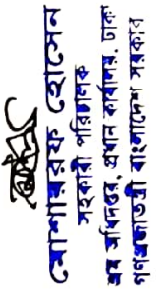 মোশাররফ হোসেন
সহকারী পরিচালক
শ্রম অধিদপ্তর, প্রধান কার্যালয়, ঢাকা
গণপ্রজাতন্ত্রী বাংলাদেশ সরকার